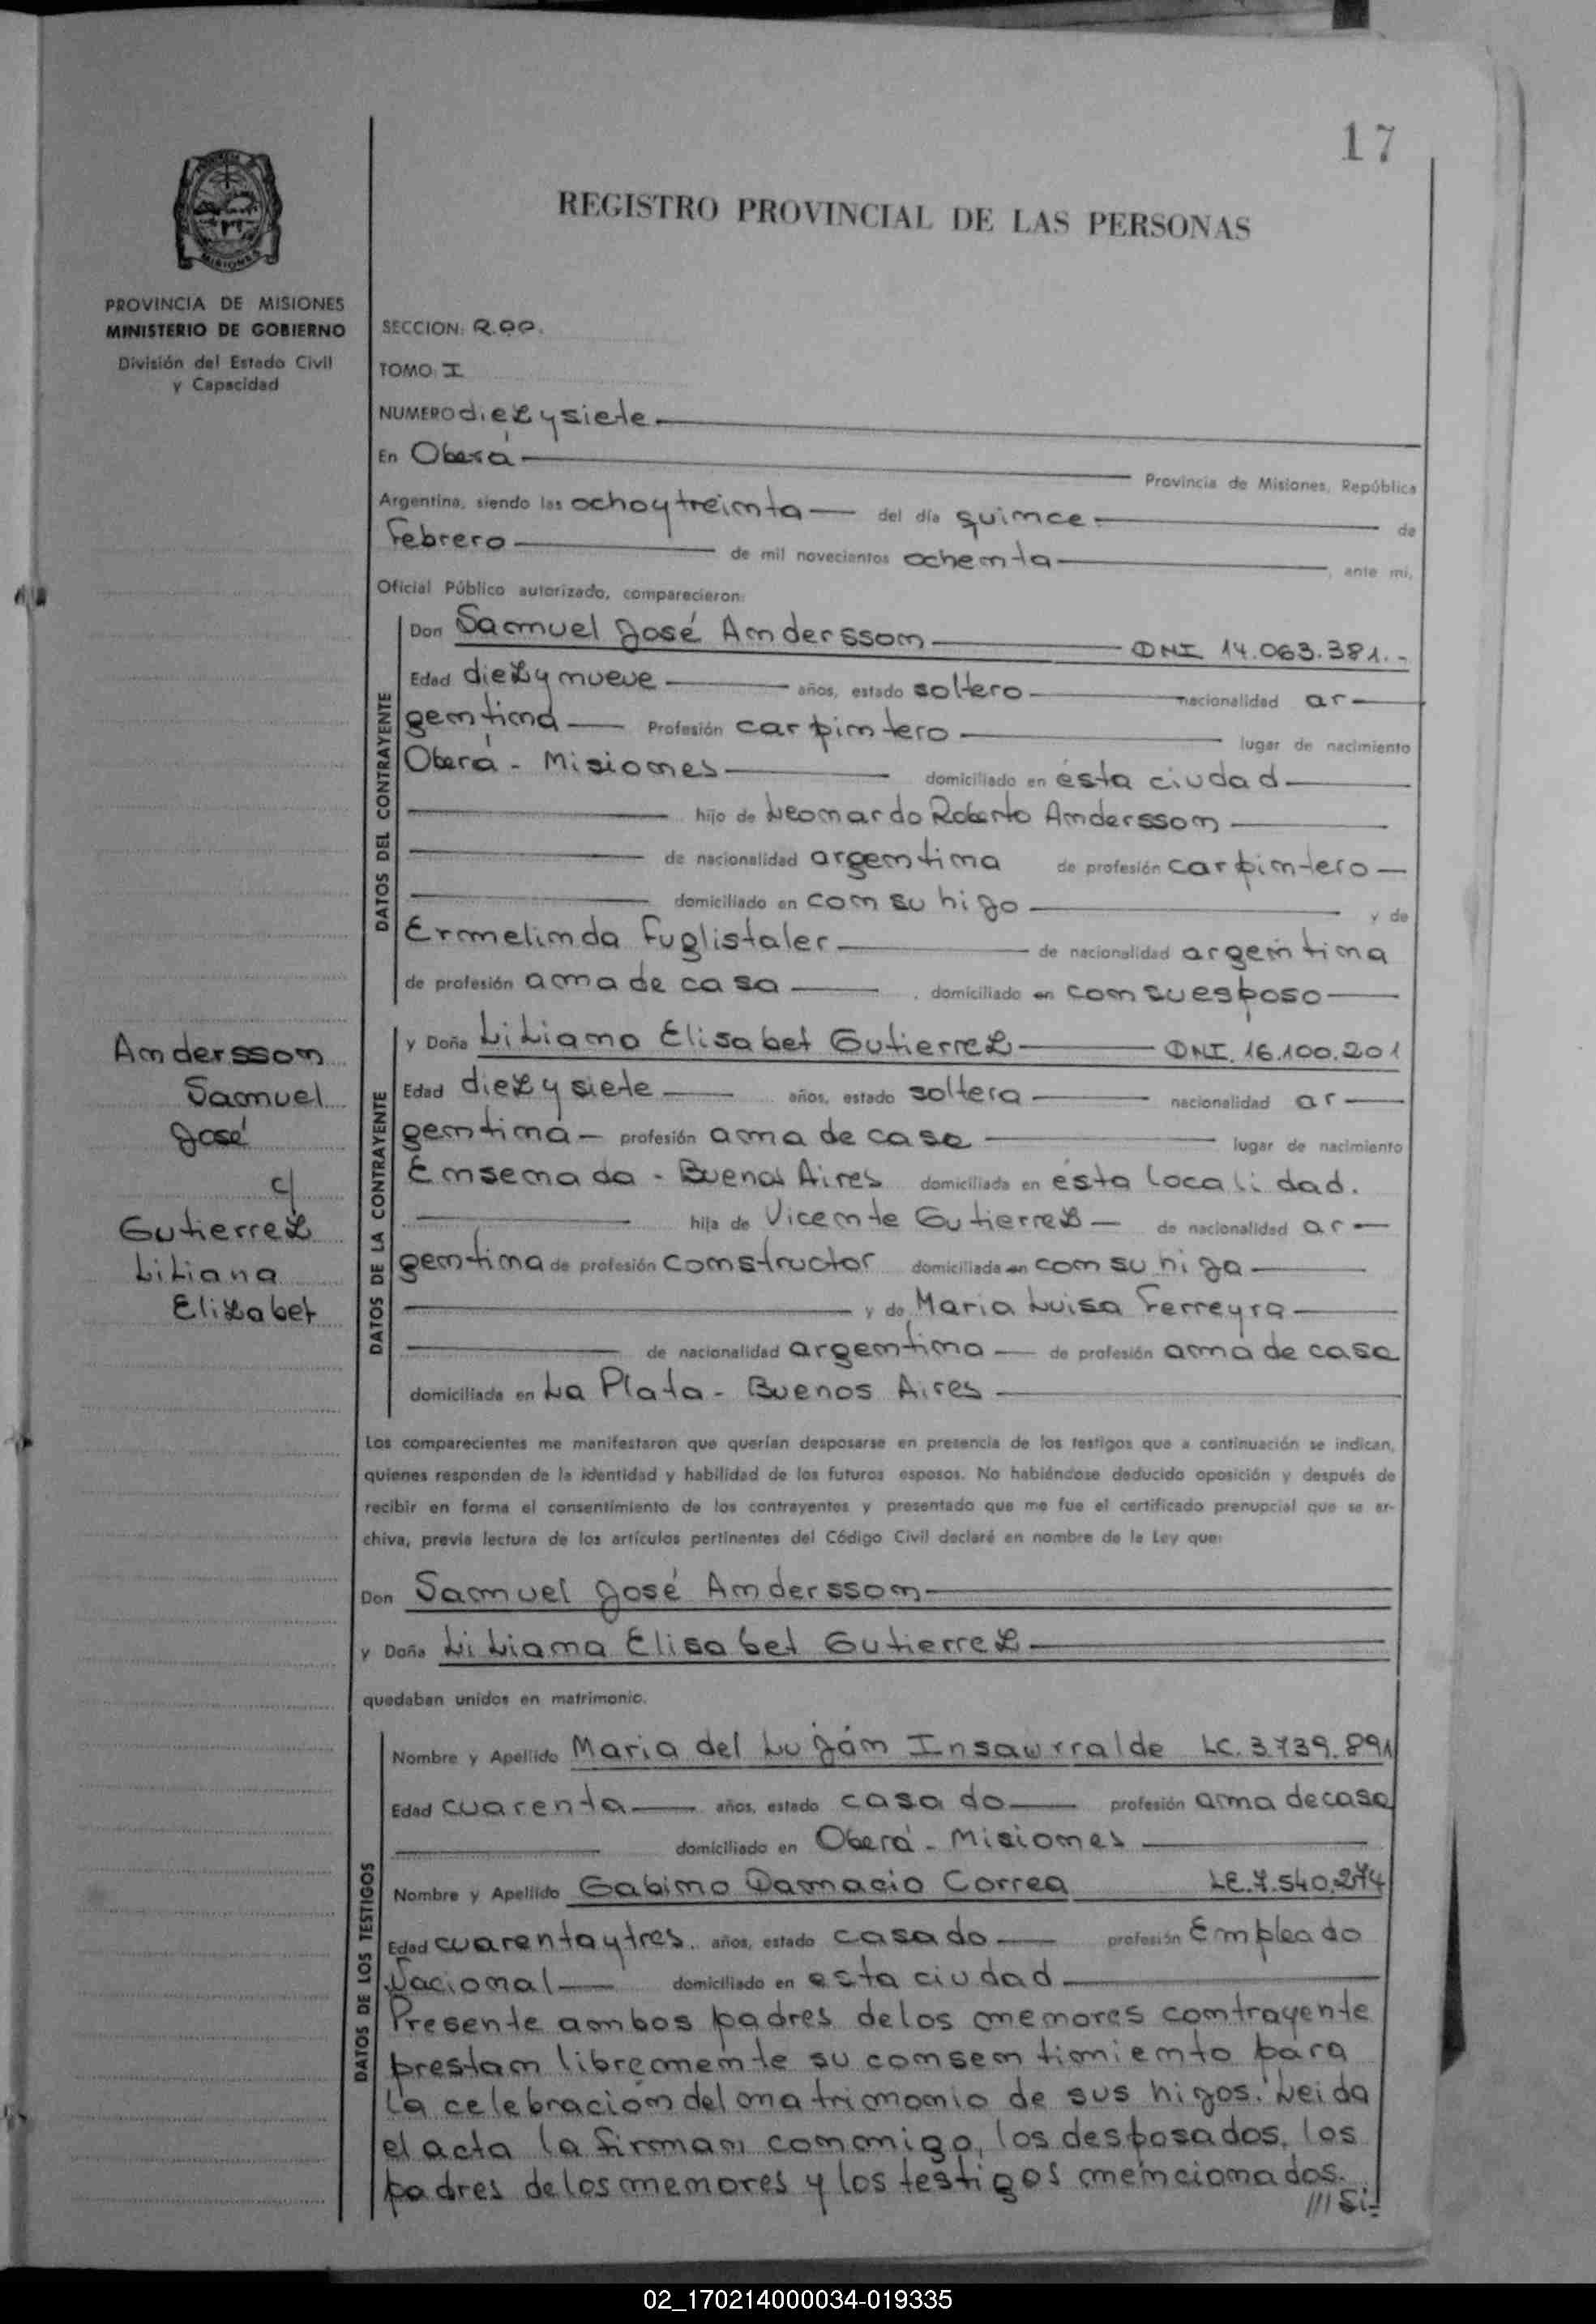 17
REGISTRO PROVINCIAL DE LAS PERSONAS
MISIONES
PROVINCIA DE MISIONES
MINISTERIO DE GOBIERNO
División del Estado Civil
y Capacidad
SECCION:
TOMO: I
NUMERO diez y siete
En Oberá Provincia de Misiones, República
Argentina, siendo las ocho y treinta del día quince de
Febrero de mil novecientos ochenta, ante mí,
Oficial Público autorizado, comparecieron:
DATOS DEL CONTRAYENTE
Don Samuel José Andersson DNI 14.063.381.-
Edad diez y nueve años, estado soltero nacionalidad ar-
gentina Profesión carpintero lugar de nacimiento
Oberá - Misiones domiciliado en ésta ciudad
hijo de Leonardo Roberto Andersson
de nacionalidad argentina de profesión carpintero
domiciliado en con su hijo y de
Ermelinda Fuglistaler de nacionalidad argentina
de profesión ama de casa, domiciliado en con su esposo
Andersson
Samuel
José
c/
Gutierrez
Liliana
Elizabet
DATOS DE LA CONTRAYENTE
y Doña Liliana Elisabet Gutierrez DNI. 16.100.201
Edad diez y siete años, estado soltera nacionalidad ar
gentina - profesión ama de casa lugar de nacimiento
Ensenada - Buenos Aires domiciliada en ésta localidad.
hija de Vicente Gutierrez de nacionalidad ar
gentina de profesión constructor domiciliada en con su hija
y de Maria Luisa Ferreyra
de nacionalidad argentina de profesión ama de casa
domiciliada en La Plata - Buenos Aires
Los comparecientes me manifestaron que querían desposarse en presencia de los testigos que a continuación se indican,
quienes responden de la identidad y habilidad de los futuros esposos. No habiéndose deducido oposición y después de
recibir en forma el consentimiento de los contrayentes y presentado que me fue el certificado prenupcial que se ar-
chiva, previa lectura de los artículos pertinentes del Código Civil declaré en nombre de la Ley que:
Don Samuel José Andersson
y Doña Liliana Elisabet Gutierrez
quedaban unidos en matrimonio.
DATOS DE LOS TESTIGOS
Nombre y Apellido Maria del Luján Insawrralde LC. 3.739.891
Edad cuarenta años, estado casado profesión ama de casa
domiciliado en Oberá - Misiones
Nombre y Apellido Gabino Damacio Correa LE. 7.540.274
Edad cuarenta y tres. años, estado casado profesión Empleado
Nacional domiciliado en esta ciudad
Presente ambos padres de los menores contrayente
prestan libremente su consentimiento para
la celebración del matrimonio de sus hijos. Leida
el acta la firman conmigo, los desposados, los
padres de los menores y los testigos mencionados.
///Si-
02_170214000034-019335